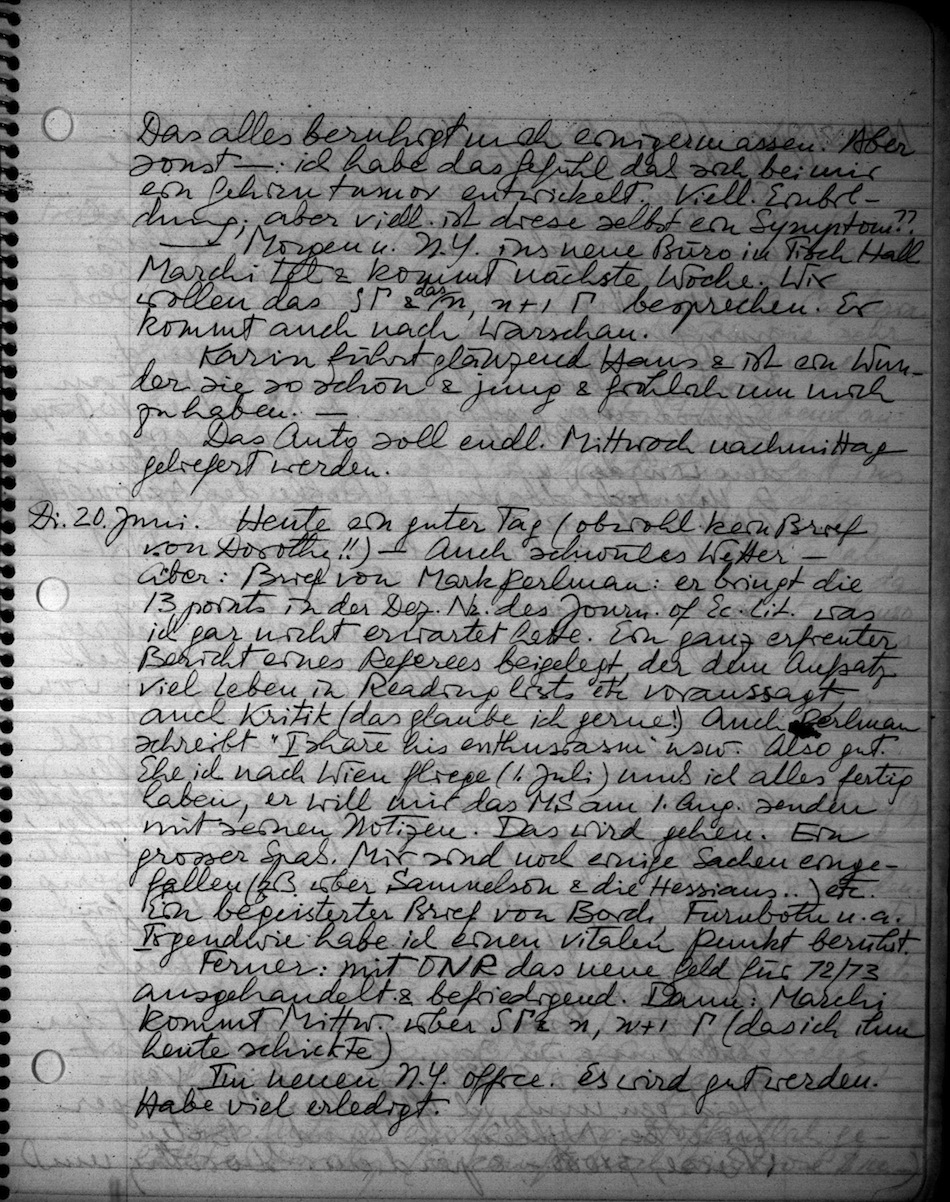 Das alles beruhigt mich einigermassen. Aber
sonst —: ich habe das Gefühl daß sich bei mir
ein Gehirntumor entwickelt. Viell. Einbil-
dung; aber viell. ist diese selbst ein Symptom??
— Morgen n. N.Y. ins neue Büro in Tisch Hall
Marchi tel & kommt nächste Woche. Wir
wollen das SΓ & das n, n+1 Γ besprechen. Er
kommt auch nach Warschau.
Karin führt glänzend Haus & ist ein Wun-
der sie so schön & jung & fröhlich um mich
zu haben. —
Das Auto soll endl. Mittwoch nachmittag
geliefert werden.
Di. 20. Juni. Heute ein guter Tag (obwohl kein Brief
von Dorothy!!) — Auch schönes Wetter —
Aber: Brief von Mark Perlman: er bringt die
13 points in der Dez. Nr. des Journ. of Ec. Lit. was
ich gar nicht erwartet hatte. Ein ganz erfreuter
Bericht eines Referees beigelegt, der dem Aufsatz
viel Leben in Reading lists etc voraussagt,
auch Kritik (das glaube ich gerne!) Auch Perlman
schreibt "I share his enthusiasm" usw. Also gut.
Ehe ich nach Wien fliege (1. Juli) muß ich alles fertig
haben, er will mir das MS am 1. Aug. senden
mit seinen Notizen. Das wird gehen. Ein
grosser Spaß. Mir sind noch einige Sachen einge-
fallen (zB über Samuelson & die Hessians..) etc.
Ein begeisterter Brief von Borch, Furuboth u.a.
Irgendwie habe ich einen vitalen Punkt berührt.
Ferner: mit ONR das neue Geld für 72/73
ausgehandelt & befriedigend. Dann: Marchi
kommt Mittw. über SΓ & n, n+1 Γ (das ich ihm
heute schickte)
Im neuen N.Y. office. Es wird gut werden.
Habe viel erledigt.